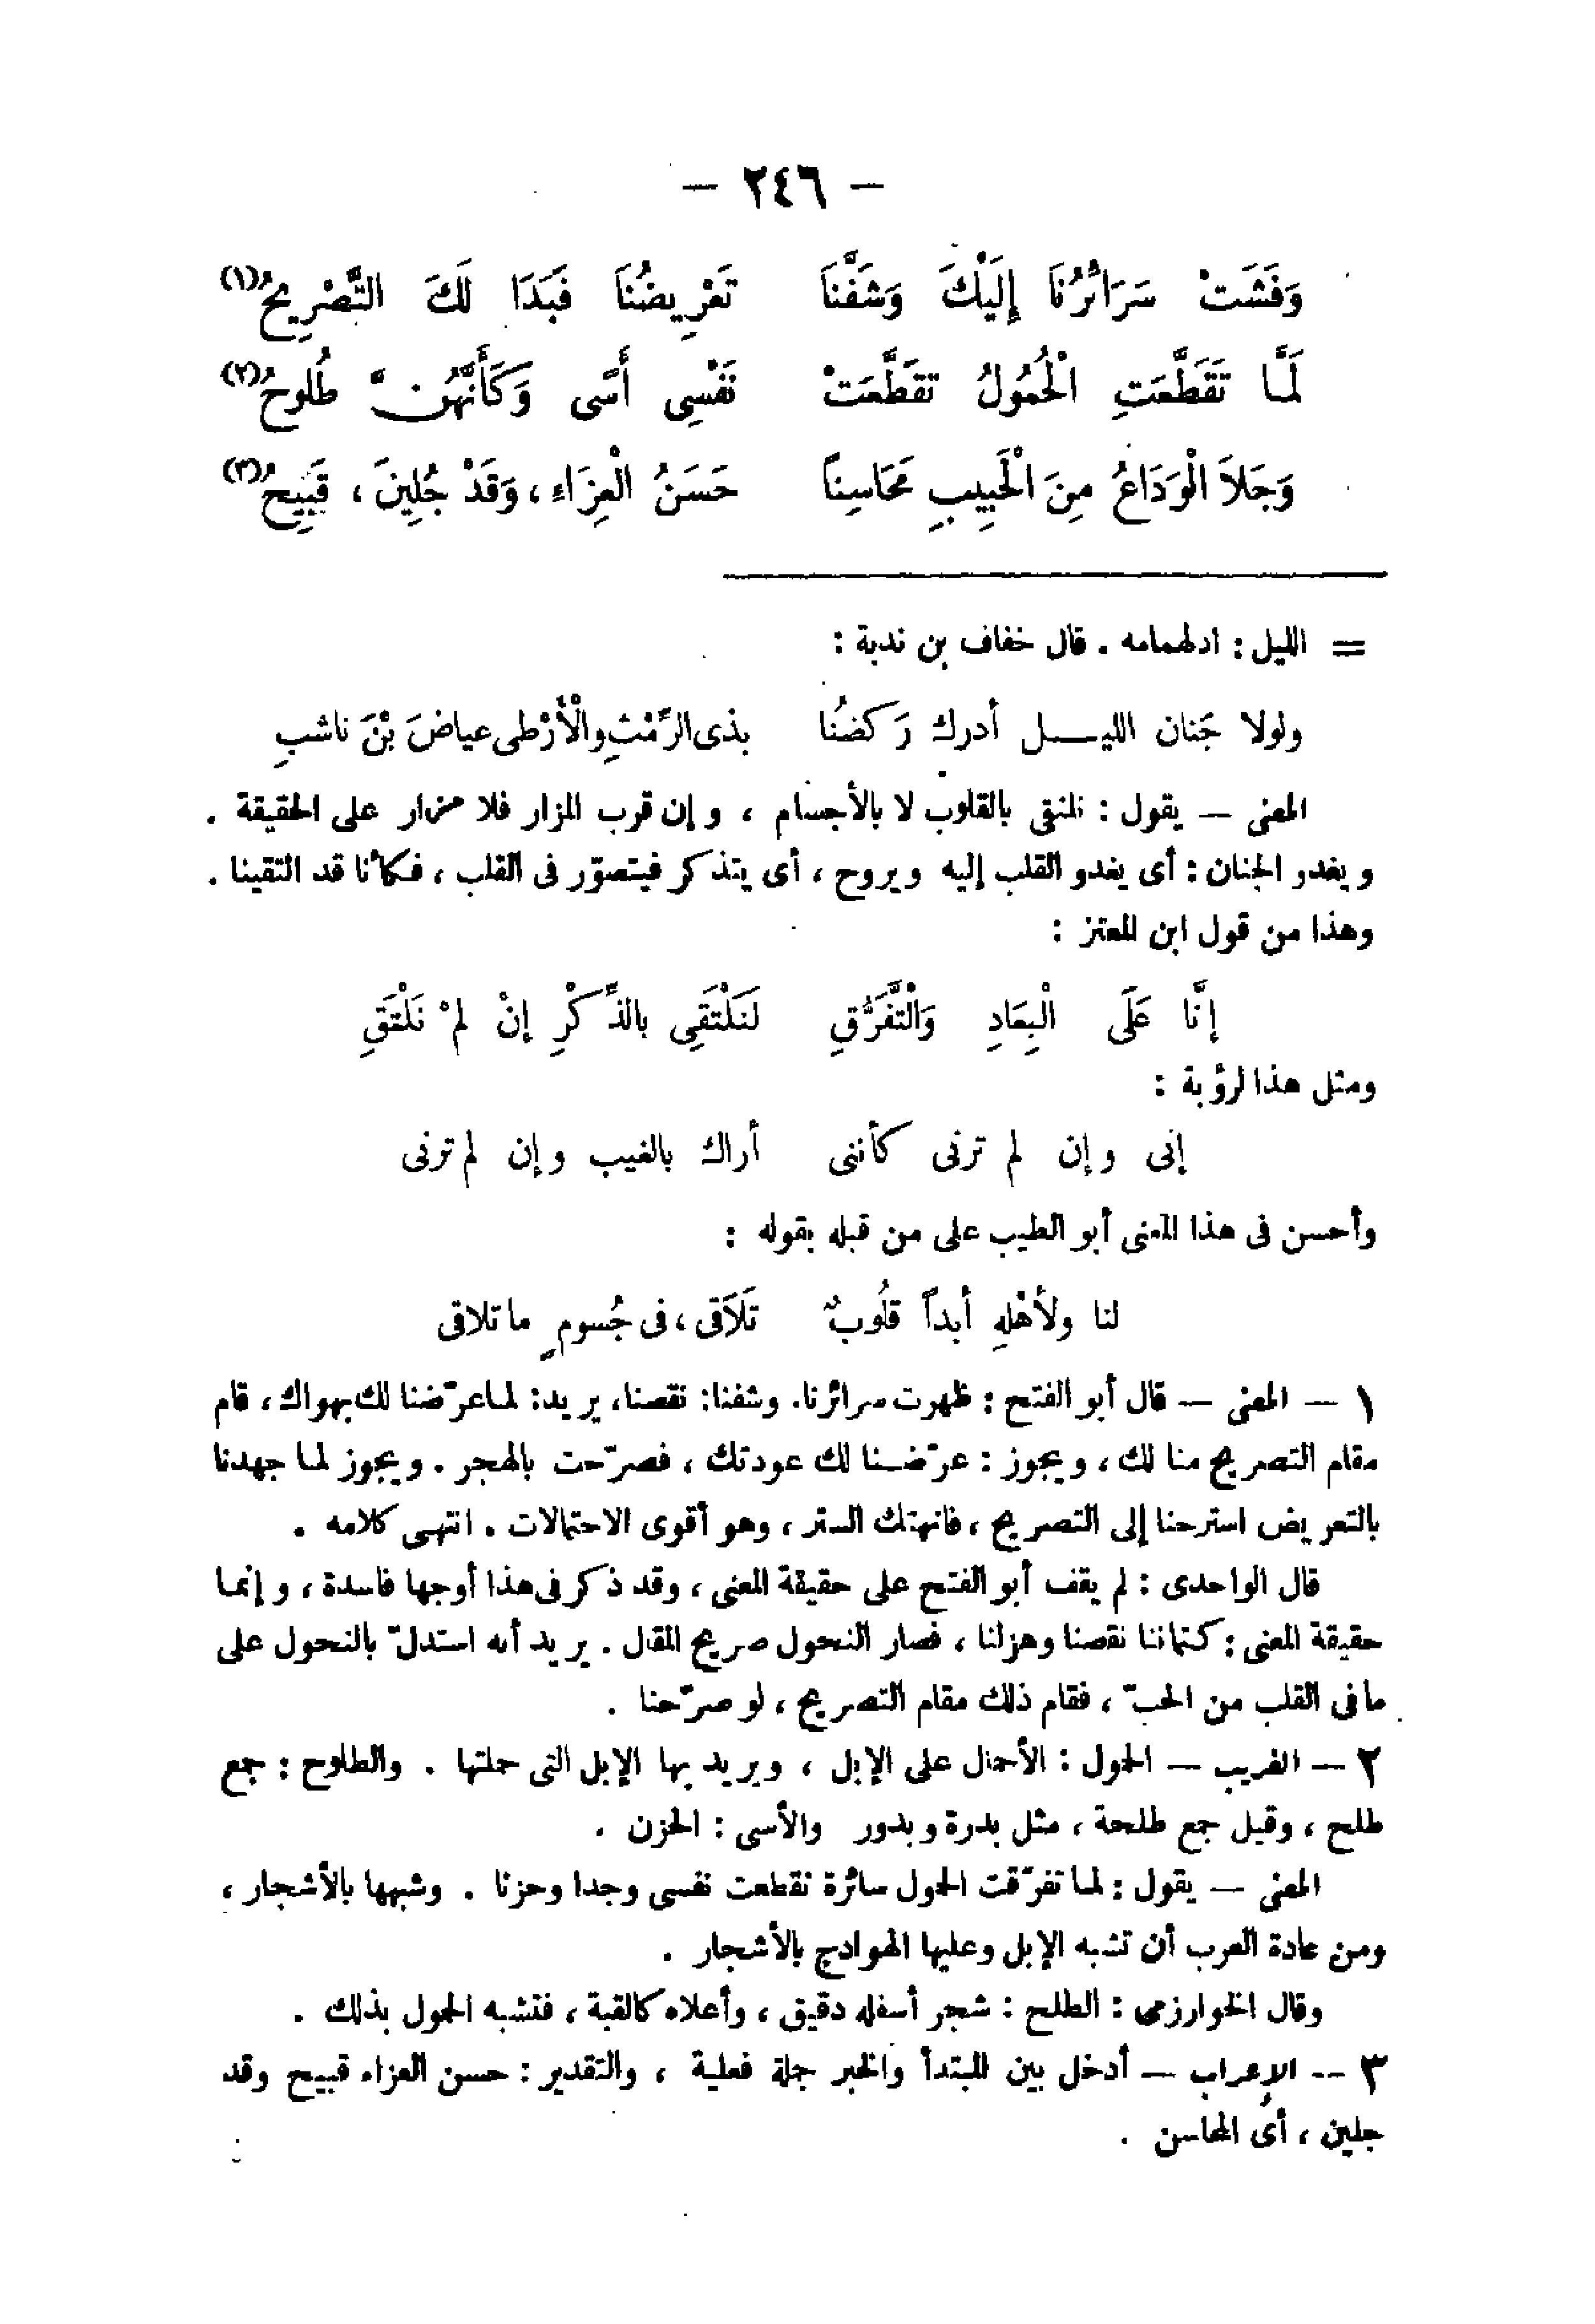 — ٢٤٦ —
وَفَشَتْ سَرَائرُنَا إِلَيْكَ وَشَفَّنَا تَعْرِيضُنَا فَبَدَا لَكَ التَّصْرِيحُ (١)
لَمَّا تَقَطَّعَتِ الْحُمُولُ تَقَطَّعَتْ نَفْسِى أَسًى وَكَأَنَّهُنَّ طُلُوحُ (٢)
وَجَلاَ الْوَدَاعُ مِنَ الْحَبِيبِ مَحَاسِناً حَسَنُ الْعِزَاءِ ، وَقَدْ جُلِينَ ، قَبِيحُ (٣)
= الليل : ادلهمامه . قال خفاف بن ندبة :
ولولا جَنان الليـــل أدرك رَكضُنا بذى الرِّمْثِ والْأَرْطى عياضَ بْنَ ناشبِ
المعنى — يقول : نلتقى بالقلوب لا بالأجسام ، وإن قرب المزار فلا مزار على الحقيقة .
ويغدو الجنان : أى يغدو القلب إليه ويروح ، أى يتذكر فيتصوّر فى القلب ، فكأنا قد التقينا .
وهذا من قول ابن المعتز :
إنَّا عَلَى الْبِعَادِ وَالْتَّفَرُّقِ لَنَلْتَقِى بالذِّكْرِ إنْ لمْ نَلْتَقِ
ومثل هذا لرؤبة :
إنى وإن لم ترنى كأننى أراك بالغيب وإن لم ترنى
وأحسن فى هذا المعنى أبو الطيب على من قبله بقوله :
لنا ولأهْلِهِ أبداً قلُوبٌ تَلاَقى ، فى جُسومٍ ما تلاقى
١ — المعنى — قال أبو الفتح : ظهرت سرائرنا. وشفنا: نقصنا، يريد: لما عرّضنا لك بهواك ، قام
مقام التصريح منا لك ، ويجوز : عرّضـنا لك عودتك ، فصرّحت بالهجر . ويجوز لما جهدنا
بالتعريض استرحنا إلى التصريح ، فانهتك الستر ، وهو أقوى الاحتمالات . انتهى كلامه .
قال الواحدى : لم يقف أبو الفتح على حقيقة المعنى ، وقد ذكر فى هذا أوجها فاسدة ، وإنما
حقيقة المعنى : كتماننا نقصنا وهزلنا ، فصار النحول صريح المقال . يريد أنه استدلّ بالنحول على
ما فى القلب من الحبّ ، فقام ذلك مقام التصريح ، لو صرّحنا .
٢ — الغريب — الحمول : الأحمال على الإبل ، ويريد بها الإبل التى حملتها . والطلوح : جمع
طلح ، وقيل جمع طلحة ، مثل بدرة وبدور والأسى : الحزن .
المعنى — يقول : لما تفرّقت الحمول سائرة تقطعت نفسى وجدا وحزنا . وشبهها بالأشجار ،
ومن عادة العرب أن تشبه الإبل وعليها الهوادج بالأشجار .
وقال الخوارزمى : الطلح : شجر أسفله دقيق ، وأعلاه كالقبة ، فتشبه الحمول بذلك .
٣ -- الإعراب — أدخل بين المبتدأ والخبر جملة فعلية ، والتقدير : حسن العزاء قبيح وقد
جلين ، أى المحاسن .